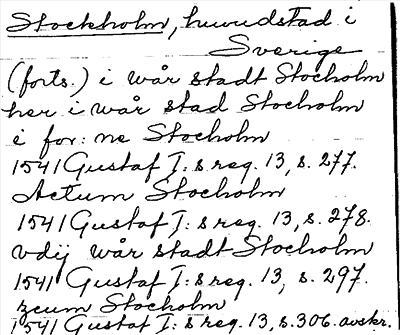 Stockholm, huvudstad i
Sverige
(forts.) i wår stadt Stocholm
her i wår stad Stocholm
i for: ne Stocholm
1541 Gustaf I: s reg. 13, s. 277.
Actum Stocholm
1541 Gustaf I: s reg. 13, s. 278.
vdij wår stadt Stocholm
1541 Gustaf I: s reg. 13, s. 297.
zcum Stocholm
1541 Gustaf I: s reg. 13, s. 306. avskr.